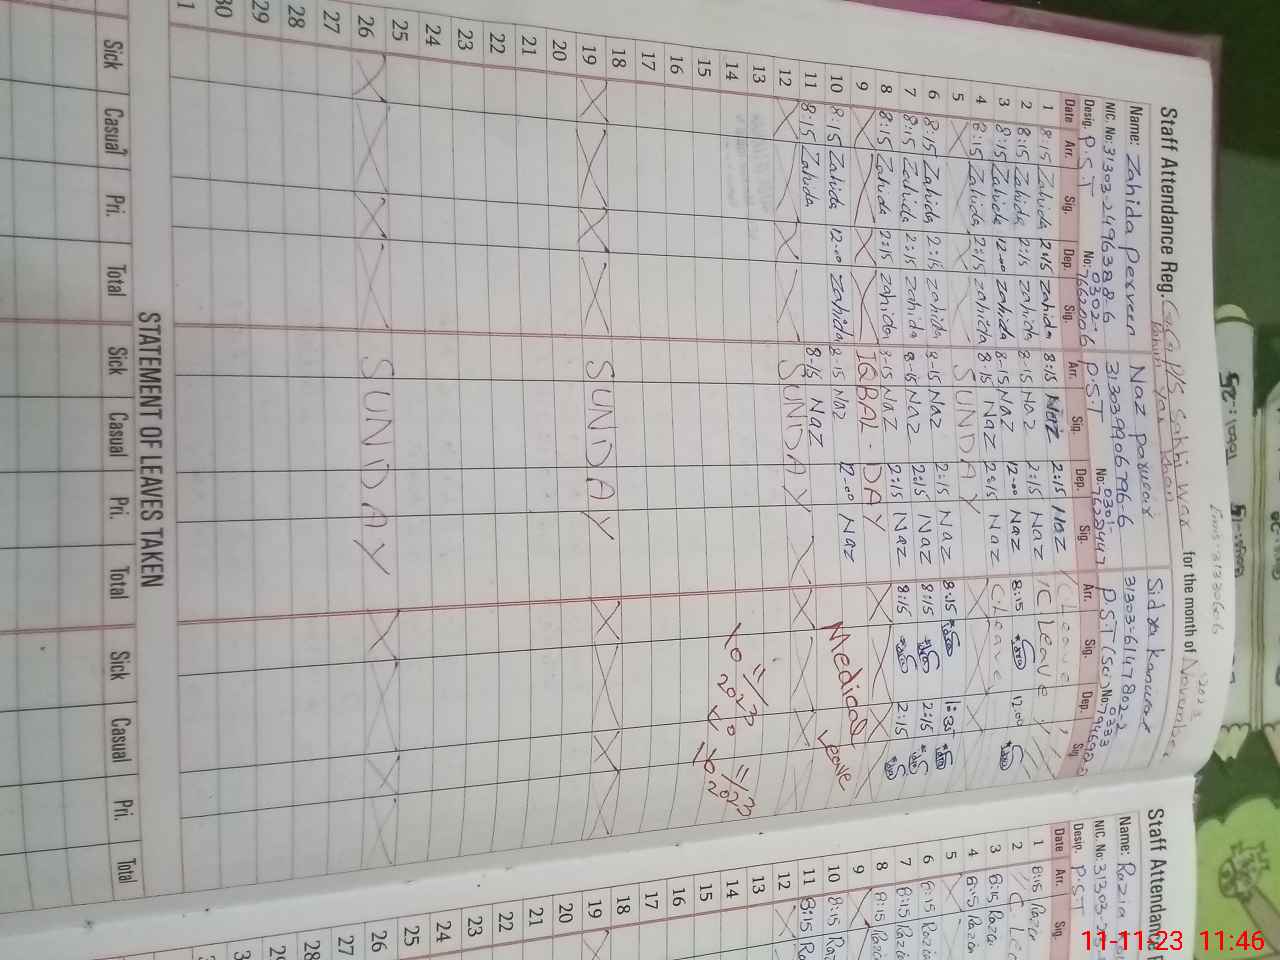 Staff Attendance Reg. GGP/S Sakhi War for the month of November 2023
Name: Zahida Perveen Naz parveen Sidra Kanwal
NIC. No: 31303-2496388-6 31303-6147802-2
Desig. P.S.T No: 0302- P.S.T No: 0301- P.S.T (Sci) No: 0333
Date Arr. Sig. Dep. Sig. Arr. Sig. Dep. Sig. Arr. Sig. Dep. Sig.
1 8:15 Zahida 2:15 Zahida 8:15 Naz 2:15 Naz C Leave
2 8:15 Zahida 2:15 Zahida 8-15 Naz 2:15 Naz C Leave
3 8:15 Zahida 12-00 Zahida 8-15 Naz 12-00 Naz 8:15 12.00
4 8:15 Zahida 2:15 Zahida 8:15 Naz 2:15 Naz C Leave
5 SUNDAY
6 8:15 Zahida 2:15 Zahida 8-15 Naz 2:15 Naz 8:15 1:35
7 8:15 Zahida 2:15 Zahida 8-15 Naz 2:15 Naz 8:15 2:15
8 8:15 Zahida 2:15 Zahida 8-15 Naz 2:15 Naz 8:15 2:15
9 IQBAL. DAY
10 8:15 Zahida 12-00 Zahida 8-15 Naz 12-00 Naz Medical Leave
11 8:15 Zahida 8-15 Naz
12 SUNDAY
13
14 10 11/2023 To 10 11/2023
15
16
17
18
19 SUNDAY
20
21
22
23
24
25
26 SUNDAY
27
28
29
30
STATEMENT OF LEAVES TAKEN
Sick Casual Pri. Total Sick Casual Pri. Total Sick Casual Pri. Total
Staff Attendance
Name: Razia
NIC. No: 31303-
Desig. P.S.T
Date Arr. Sig.
1 8:15 Razia
2 C Lea
3 8:15 Razia
4 8:15 Razia
5
6 8:15 Razia
7 8:15 Razia
8 8:15 Razia
9
10 8:15 Razia
11 8:15 Ra
12
13
14
15
16
17
18
19
20
21
22
23
24
25
26
27
28
11-11-23 11:46